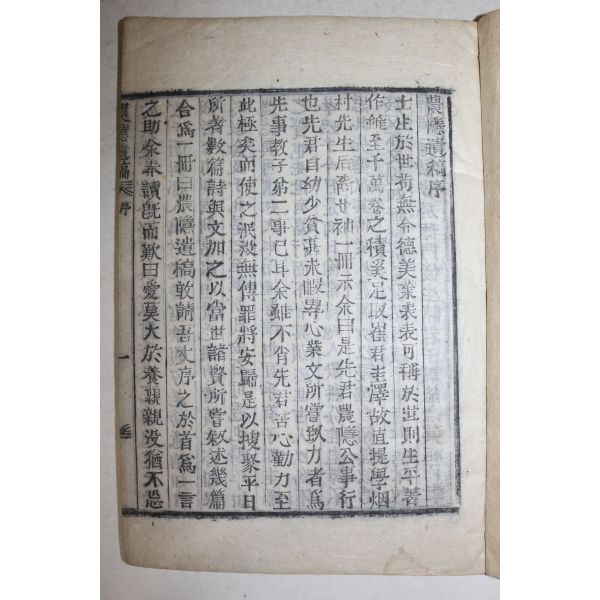 農隱遺稿序
士生於世苟無令德美業表表可稱於世則生平著
作雖至千萬卷之積奚足取崔君圭澤故直提學烟
村先生后裔也袖一冊示余曰是先君農隱公事行
也先君自幼少貧甚未暇專心業文所嘗致力者為
先事教子弟二事已耳余雖不肖先君苦心勤力至
此極矣而使之泯没無傳罪將安歸是以搜聚平日
所著數篇詩與文加之以當世諸賢所嘗敘述幾篇
合爲一冊曰農隱遺稿敢請吾丈序之於首爲一言
之助余奉讀旣而歎曰愛莫大於養親親没猶不忍
農隱遺稿 序 一